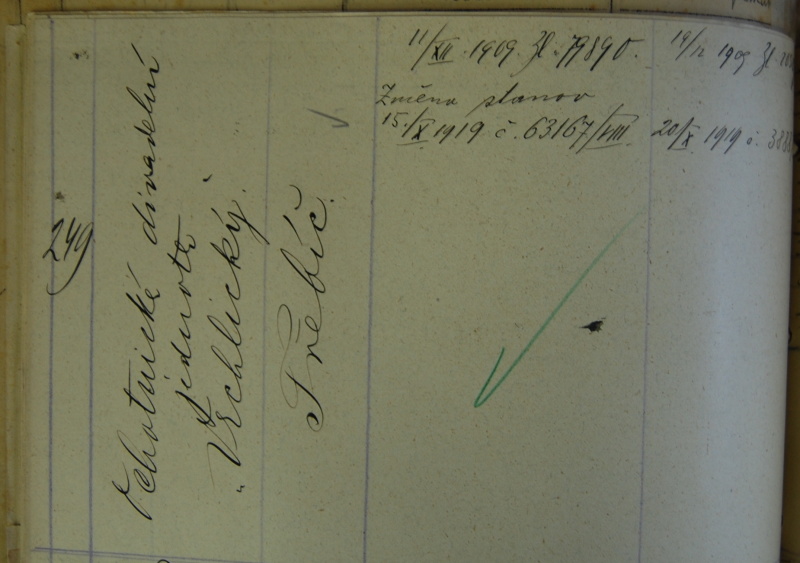 249
Ochotnická divadelní
jednota
„Vrchlický".
Třebíč.
11/XII. 1909. Zl. 79890.
Změna stanov
15./X. 1919 č. 63167/VIII.
19/12 1909 Zl.
20/X. 1919 č. 388